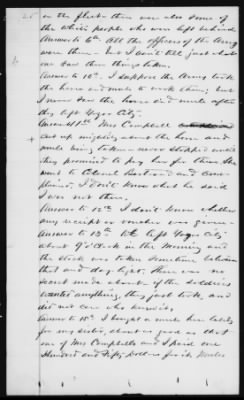 in the fleet – there were also some of
the white people who were left behind
Answer to 6th All the officers of the Army
were there – but I don't tell just what
one saw these things taken.
Answer to 10th. I suppose the Army took
the horse and mule to work them; but
I never saw the horse and mule after
they left Yazoo City.
Answer to 11th Mrs Campbell
cut up mighty about the horse and
mule being taken – never stopped until
they promised to pay her for them. She
went to Colonel and com-
plained, I don't know what he said
I was not there.
Answer to 12th. I don't know whether
any receipt or voucher was given
Answer to 13th We left Yazoo City
about 9 o'clock in the morning and
the stock was taken sometime between
that and day light. There was no
secret made about – if the soldiers
wanted anything, they just took, and
did not care who knew it.
Answer to 15th I bought a mule here lately
for my sister, about as good as that
one of Mrs Campbells and I paid one
Hundred and Fifty Dollars for it. Mules